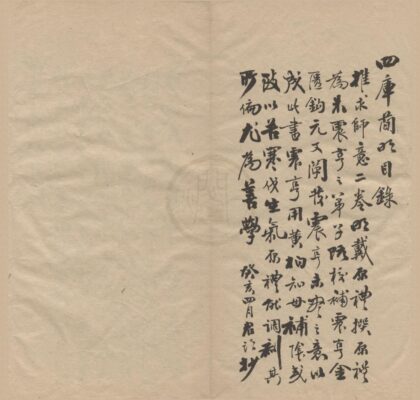 四庫簡明目錄
推求師意二卷明戴原禮撰原禮
為朱震亨之弟子既校補震亨金
匱鉤元又闡發震亨未竟之意以
成此書震亨用黃柏知母補陰或
致以苦寒伐生氣原禮能調劑其
所偏尤為善學 癸亥四月 抄